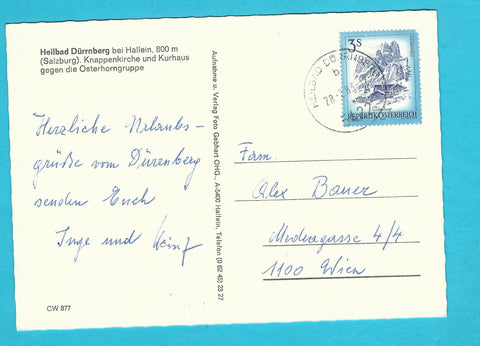 Heilbad Dürrnberg bei Hallein, 800 m
(Salzburg). Knappenkirche und Kurhaus
gegen die Osterhorngruppe
Herzliche Urlaubs-
grüße vom Dürrnberg
senden Euch
Inge und
CW 877
Aufnahme u. Verlag Foto Gebhart OHG., A-5400 Hallein, Telefon (0 62 45) 23 27
HEILBAD DÜRRNBERG
3 S
REPUBLIK ÖSTERREICH
Fam.
Alex Bauer
Modenagasse 4/4
1100 Wien